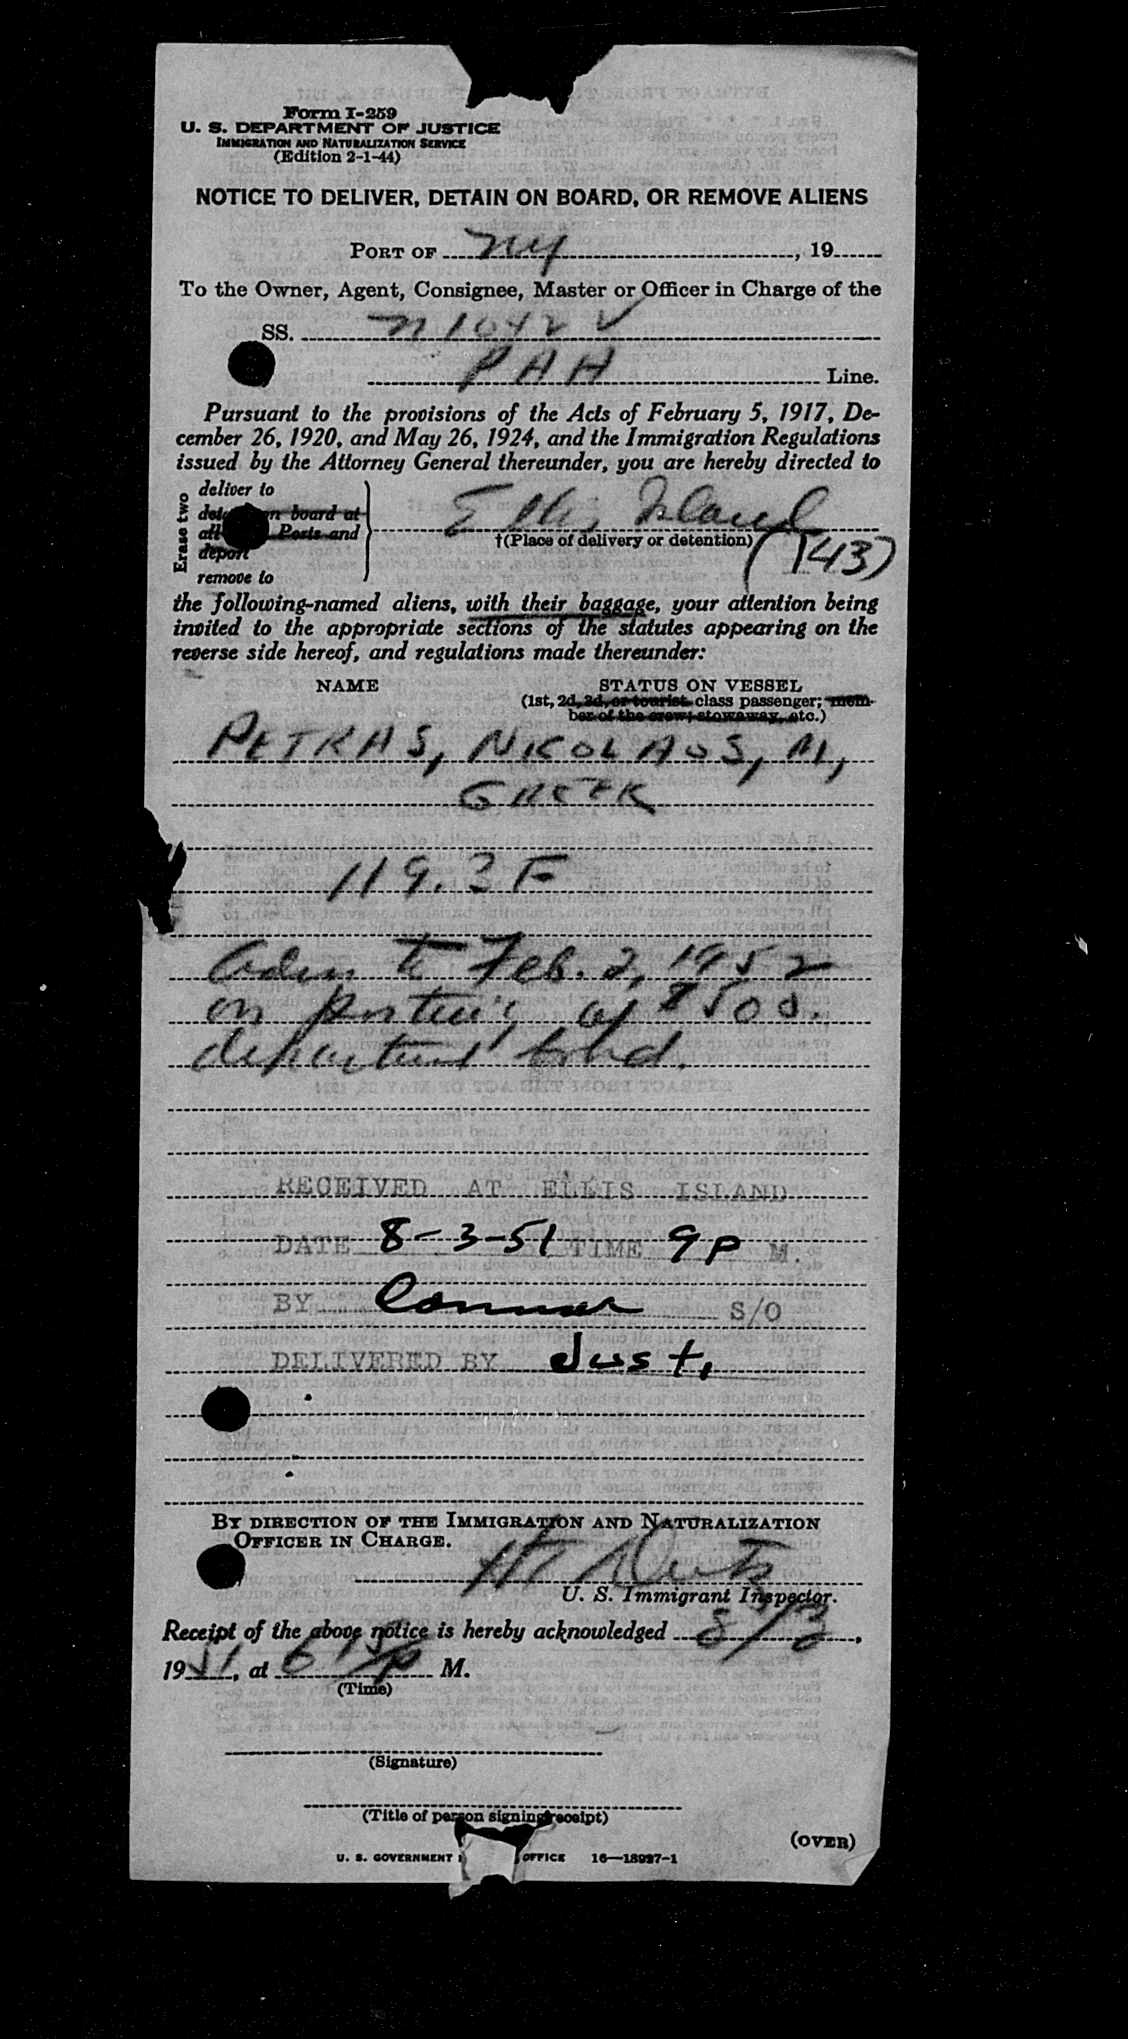 Form I-259
U. S. DEPARTMENT OF JUSTICE
IMMIGRATION AND NATURALIZATION SERVICE
(Edition 2-1-44)
NOTICE TO DELIVER, DETAIN ON BOARD, OR REMOVE ALIENS
PORT OF NY, 19
To the Owner, Agent, Consignee, Master or Officer in Charge of the
SS. N 1042 V
PAA Line.
Pursuant to the provisions of the Acts of February 5, 1917, De-
cember 26, 1920, and May 26, 1924, and the Immigration Regulations
issued by the Attorney General thereunder, you are hereby directed to
Erase two
deliver to
on board at
all Ports and
deport
remove to
Ellis Island
†(Place of delivery or detention)
(143)
the following-named aliens, with their baggage, your attention being
invited to the appropriate sections of the statutes appearing on the
reverse side hereof, and regulations made thereunder:
NAME STATUS ON VESSEL
(1st, 2d, 3d, or tourist class passenger; mem-
ber of the crew; stowaway, etc.)
PETRAS, NIKOLAOS, M,
GREEK
119.3 F
Adm to Feb. 2, 1952
on posting of $500.
departure bond.
RECEIVED AT ELLIS ISLAND
DATE 8-3-51 TIME 9 P M.
BY Connor S/O
DELIVERED BY Just.
BY DIRECTION OF THE IMMIGRATION AND NATURALIZATION
OFFICER IN CHARGE.
U. S. Immigrant Inspector.
Receipt of the above notice is hereby acknowledged 8/3,
1951, at 6 15 p M.
(Time)
(Signature)
(Title of person signing receipt)
(OVER)
U. S. GOVERNMENT OFFICE 16—18927-1